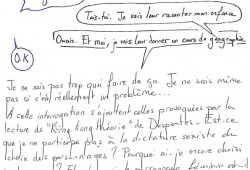 Tais-toi. Je vais leur raconter mon enfance.
Ouais. Et moi, je vais leur donner un cours de géographie
O.K
Je ne sais pas trop que faire de ça. Je ne sais même
pas si c'est réellement un problème...
A cette interrogation s'ajoutent celles provoquées par la
lecture de "King Kong théorie" de Despentes. Est-ce
que je ne participe pas à la dictature sexiste du
choix des personnages ? Pourquoi ai-je encore choisi